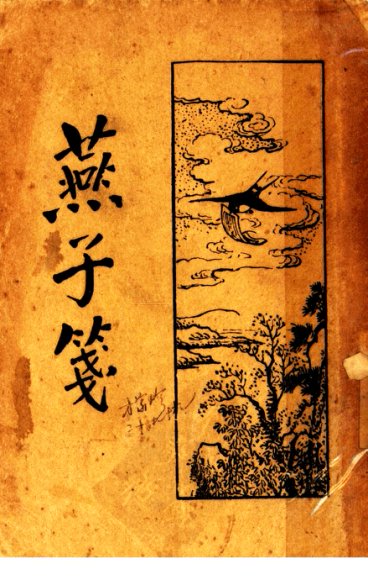 燕子箋